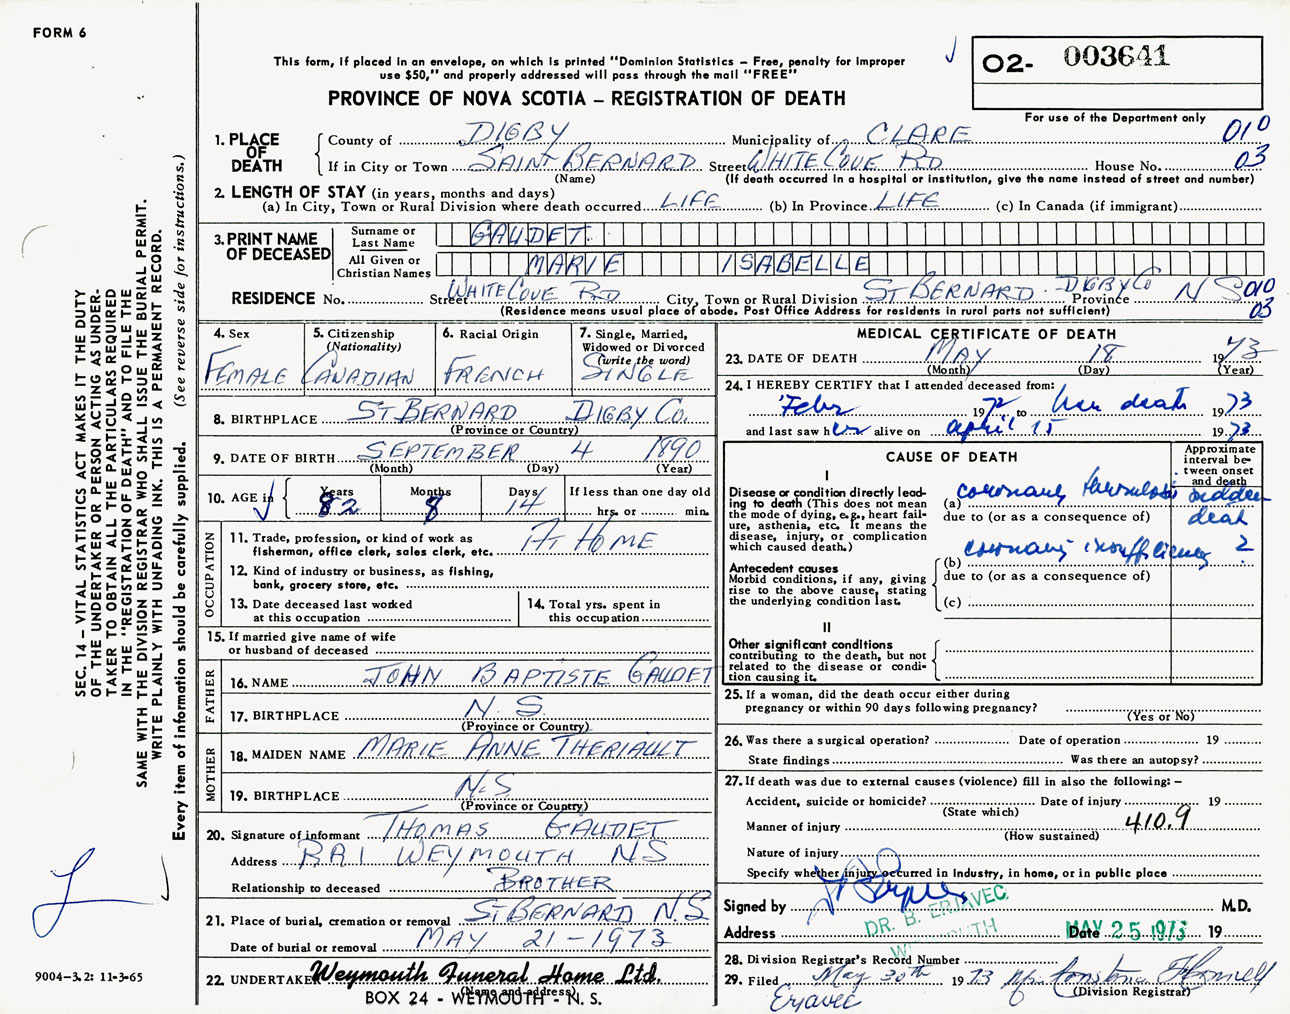 FORM 6
This form, if placed in an envelope, on which is printed "Dominion Statistics – Free, penalty for improper
use $50," and properly addressed will pass through the mail "FREE"
PROVINCE OF NOVA SCOTIA – REGISTRATION OF DEATH
02- 003641
For use of the Department only
010
03
1. PLACE OF DEATH
County of DIGBY Municipality of CLARE
If in City or Town SAINT BERNARD Street WHITE COVE RD House No.
(Name) (If death occurred in a hospital or institution, give the name instead of street and number)
2. LENGTH OF STAY (in years, months and days)
(a) In City, Town or Rural Division where death occurred LIFE (b) In Province LIFE (c) In Canada (if immigrant)
3. PRINT NAME OF DECEASED
Surname or Last Name GAUDET
All Given or Christian Names MARIE ISABELLE
RESIDENCE No. Street WHITE COVE RD City, Town or Rural Division ST BERNARD DIGBY CO Province N S 010
03
(Residence means usual place of abode. Post Office Address for residents in rural parts not sufficient)
4. Sex
FEMALE
5. Citizenship
(Nationality)
CANADIAN
6. Racial Origin
FRENCH
7. Single, Married,
Widowed or Divorced
(write the word)
SINGLE
8. BIRTHPLACE ST BERNARD DIGBY CO.
(Province or Country)
9. DATE OF BIRTH SEPTEMBER 4 1890
(Month) (Day) (Year)
10. AGE in Years 82 Months 8 Days 14 If less than one day old
hrs. or min.
OCCUPATION
11. Trade, profession, or kind of work as
fisherman, office clerk, sales clerk, etc. AT HOME
12. Kind of industry or business, as fishing,
bank, grocery store, etc.
13. Date deceased last worked
at this occupation
14. Total yrs. spent in
this occupation
15. If married give name of wife
or husband of deceased
FATHER
16. NAME JOHN BAPTISTE GAUDET
17. BIRTHPLACE N. S.
(Province or Country)
MOTHER
18. MAIDEN NAME MARIE ANNE THERIAULT
19. BIRTHPLACE N.S.
(Province or Country)
20. Signature of informant THOMAS GAUDET
Address R.R.1 WEYMOUTH NS
Relationship to deceased BROTHER
21. Place of burial, cremation or removal ST BERNARD N.S
Date of burial or removal MAY 21 – 1973
22. UNDERTAKER Weymouth Funeral Home Ltd.
(Name and address)
BOX 24 - WEYMOUTH - N. S.
MEDICAL CERTIFICATE OF DEATH
23. DATE OF DEATH MAY 18 1973
(Month) (Day) (Year)
24. I HEREBY CERTIFY that I attended deceased from:
Febr 1972 to her death 1973
and last saw her alive on april 15 1973
CAUSE OF DEATH
Approximate
interval be-
tween onset
and death
I
Disease or condition directly lead-
ing to death (This does not mean
the mode of dying, e.g., heart fail-
ure, asthenia, etc. It means the
disease, injury, or complication
which caused death.)
(a) coronary thrombosis sudden
due to (or as a consequence of) death
Antecedent causes
Morbid conditions, if any, giving
rise to the above cause, stating
the underlying condition last.
(b) coronary insufficiency ?
due to (or as a consequence of)
(c)
II
Other significant conditions
contributing to the death, but not
related to the disease or condi-
tion causing it.
25. If a woman, did the death occur either during
pregnancy or within 90 days following pregnancy?
(Yes or No)
26. Was there a surgical operation? Date of operation 19
State findings Was there an autopsy?
27. If death was due to external causes (violence) fill in also the following: –
Accident, suicide or homicide? Date of injury 19
(State which)
Manner of injury 410.9
(How sustained)
Nature of injury
Specify whether injury occurred in industry, in home, or in public place
Signed by M.D.
DR. B. ERJAVEC
Address Date MAY 25 1973 19
28. Division Registrar's Record Number
29. Filed May 30th 1973
(Division Registrar)
Erjavec
SEC. 14 – VITAL STATISTICS ACT MAKES IT THE DUTY
OF THE UNDERTAKER OR PERSON ACTING AS UNDER-
TAKER TO OBTAIN ALL THE PARTICULARS REQUIRED
IN THE "REGISTRATION OF DEATH" AND TO FILE THE
SAME WITH THE DIVISION REGISTRAR WHO SHALL ISSUE THE BURIAL PERMIT.
WRITE PLAINLY WITH UNFADING INK. THIS IS A PERMANENT RECORD.
Every item of information should be carefully supplied. (See reverse side for instructions.)
9004-3.2: 11-3-65